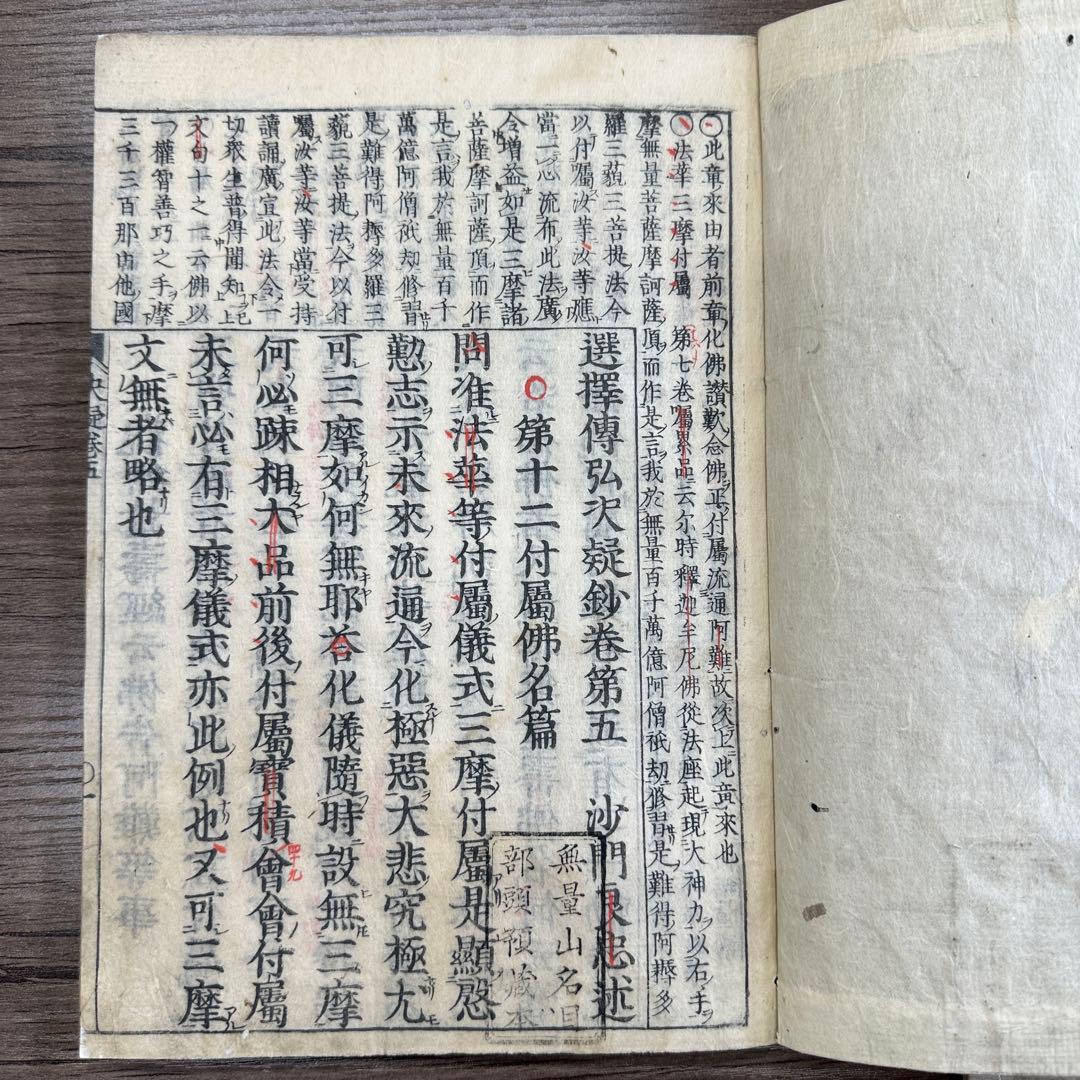 〇此章來由者前章化佛讃歎念佛正付屬流通阿難故次上此章來也
〇法華三摩付屬 第七卷屬累品云尓時釋迦牟尼佛從法座起現大神力以右手
摩無量菩薩摩訶薩頂而作是言我於無量百千萬億阿僧祇劫修習是難得阿耨多
羅三藐三菩提法今
以付屬汝等汝等應
當一心流布此法廣
令增益如是三摩諸
菩薩摩訶薩頂而作
是言我於無量百千
萬億阿僧祇劫修習
是難得阿耨多羅三
藐三菩提法今以付
屬汝等汝等當受持
讀誦廣宣此法令一
切衆生普得聞知已上
文句十之一云佛以
一權智善巧之手摩
三千三百那由他國
選擇傳弘決疑鈔卷第五 沙門良忠述
第十二付屬佛名篇
問准法華等付屬儀式三摩付屬是顯慇
懃志示未來流通今化極惡大悲究極尤
可三摩如何無耶荅化儀隨時設無三摩
何必疎相大品前後付屬寶積會會付屬
四十九
未言必有三摩儀式亦此例也又可三摩
文無者略也
決疑卷五
〇一
無量山名目
部頭領蔵本